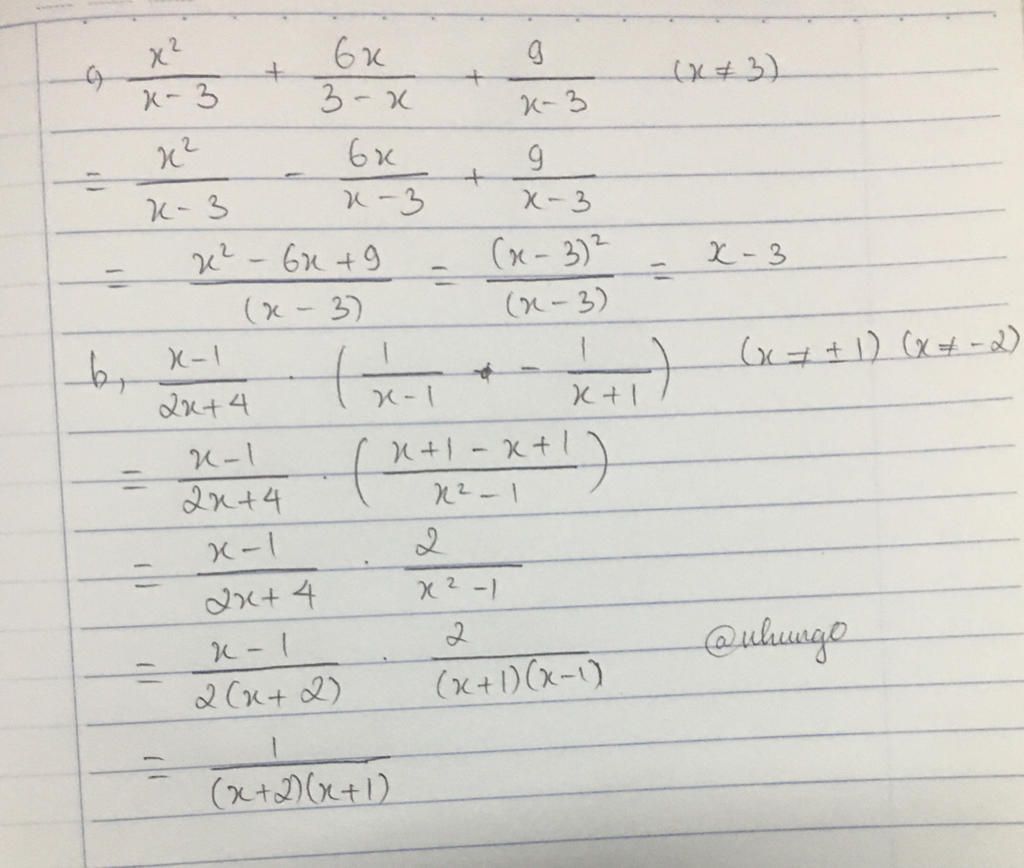 a, x²/(x-3) + 6x/(3-x) + 9/(x-3) (x ≠ 3)
= x²/(x-3) - 6x/(x-3) + 9/(x-3)
= (x² - 6x + 9)/(x - 3) = (x - 3)²/(x - 3) = x - 3
b, (x-1)/(2x+4) . (1/(x-1) - 1/(x+1)) (x ≠ ±1) (x ≠ -2)
= (x-1)/(2x+4) . ((x+1-x+1)/(x²-1))
= (x-1)/(2x+4) . 2/(x²-1)
= (x-1)/(2(x+2)) . 2/((x+1)(x-1))
= 1/((x+2)(x+1))